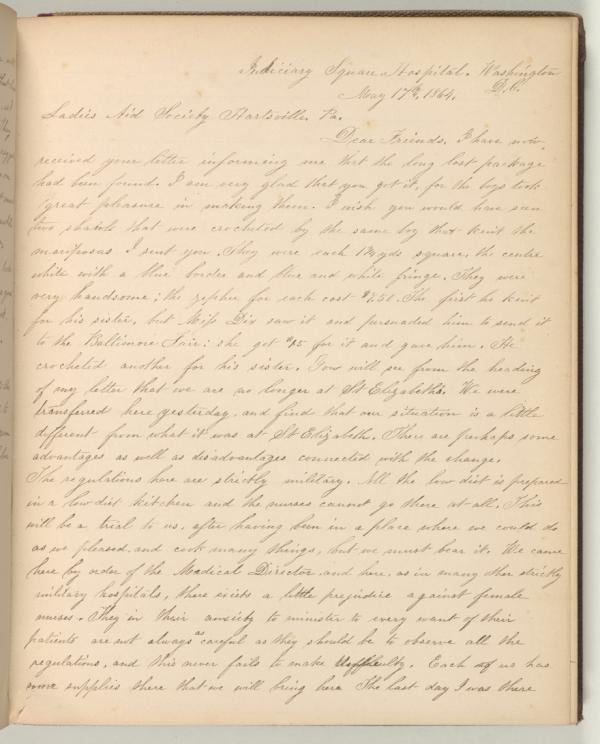 Judiciary Square Hospital. Washington
D.C.
May 17th, 1864.
Ladies Aid Society Hartsville. Pa.
Dear Friends, I have now
received your letter informing me that the long lost package
had been found. I am very glad that you got it, for the boys took
great pleasure in making them. I wish you would have seen
two shawls that were crocheted by the same boy that knit the
mariposas I sent you. They were each 1¾ yds square, the centre
white with a blue border and blue and white fringe. They were
very handsome; the zephyr for each cost $7,50. The first he knit
for his sister, but Miss Dix saw it and persuaded him to send it
to the Baltimore Fair: she got $15 for it and gave him. He
crocheted another for his sister. You will see from the heading
of my letter that we are no longer at St Elizabeths. We were
transferred here yesterday, and find that our situation is a little
different from what it was at St Elizabeth. There are perhaps some
advantages as well as disadvantages connected with the change.
The regulations here are strictly military. All the low diet is prepared
in a low diet kitchen and the nurses cannot go there at all. This
will be a trial to us, after having been in a place where we could do
as we pleased, and cook many things, but we must bear it. We came
here by order of the Medical Director, and here, as in many other strictly
military hospitals, there exists a little prejudice against female
nurses. They in their anxiety to minister to every want of their
patients are not always as careful as they should be to observe all the
regulations, and this never fails to make difficulty. Each of us has
some supplies there that we will bring here The last day I was there